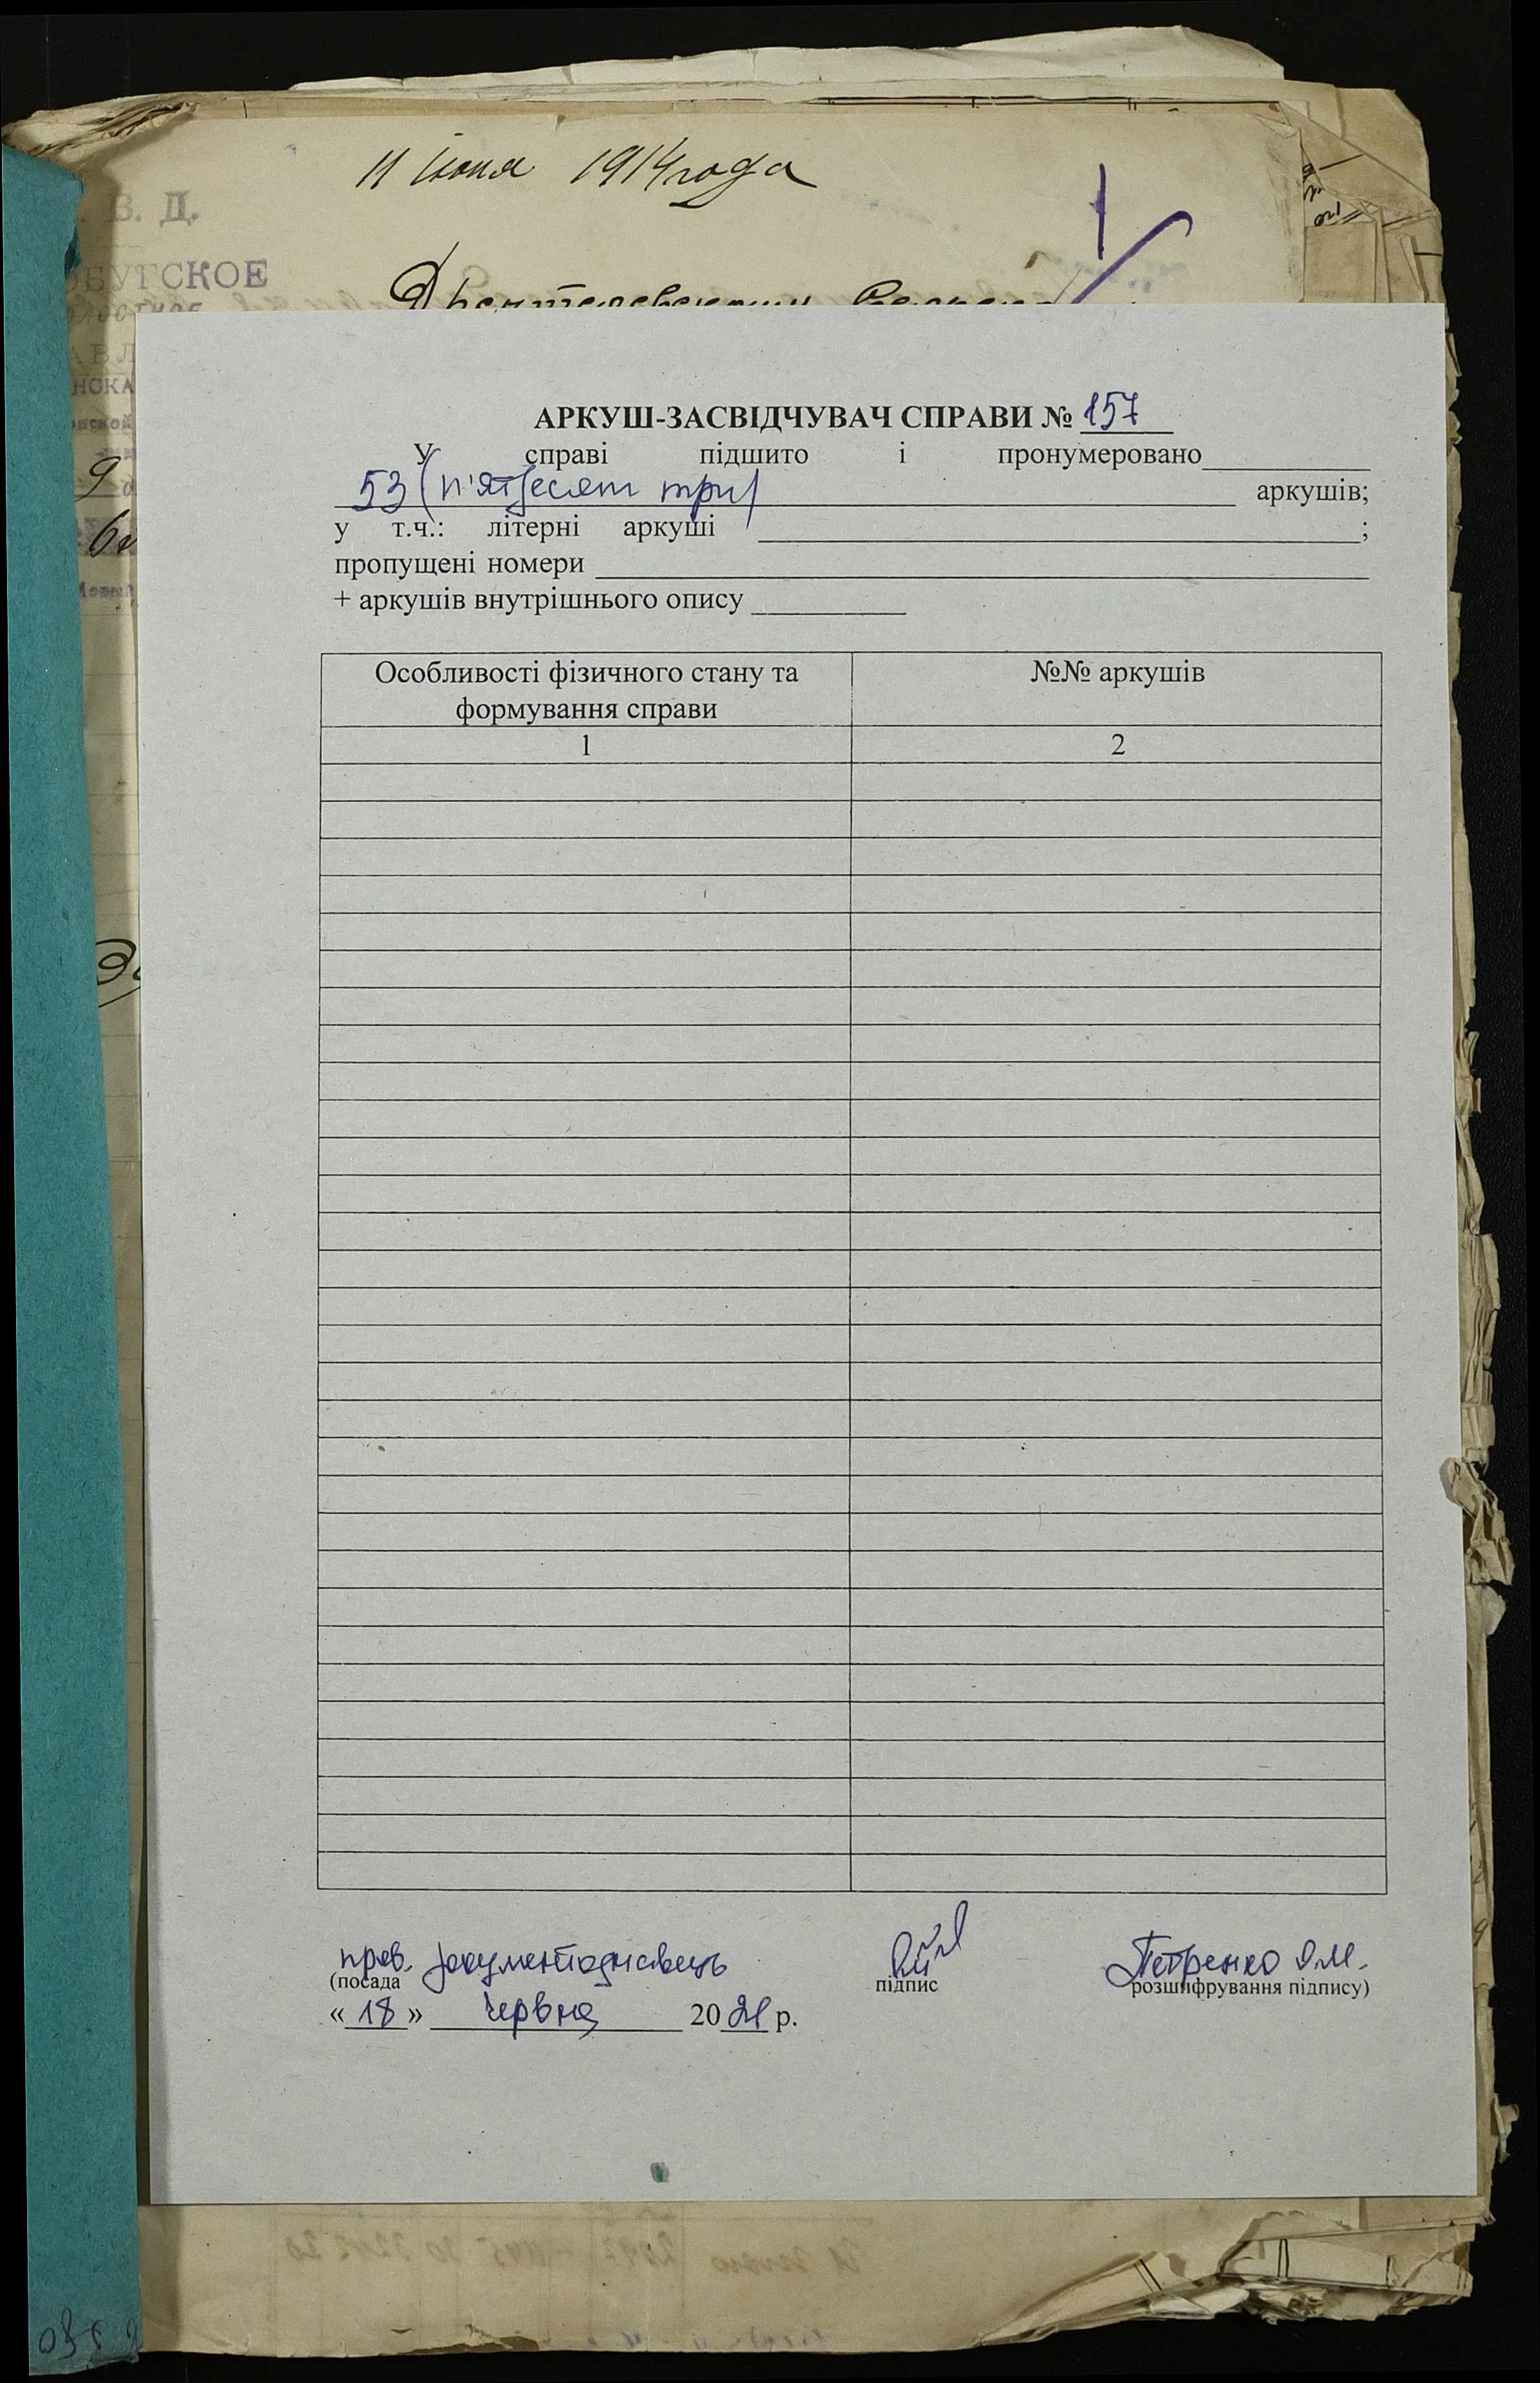 11 июня 1914 года
В. Д.
БУГСКОЕ
АРКУШ-ЗАСВІДЧУВАЧ СПРАВИ № 157
У справі підшито і пронумеровано
53 (п'ятдесят три) аркушів;
у т.ч.: літерні аркуші ;
пропущені номери
+ аркушів внутрішнього опису
Особливості фізичного стану та формування справи
№№ аркушів
1 2
пров. документознавець
Петренко О.М.
(посада підпис розшифрування підпису)
« 18 » червня 2021 р.